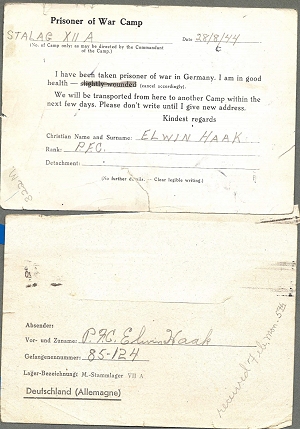 Prisoner of War Camp
STALAG XII A Date 28/8/44
(No. of Camp only; as may be directed by the Commandant
of the Camp.)
I have been taken prisoner of war in Germany. I am in good
health — slightly wounded (cancel accordingly).
We will be transported from here to another Camp within the
next few days. Please don't write until I give new address.
Kindest regards
Christian Name and Surname: ELWIN HAAK
Rank: PFC.
Detachment:
(No further details. — Clear legible writing.)
Absender:
Vor- und Zuname: Pfc. Elwin Haak
Gefangenennummer: 85-124
Lager-Bezeichnung: M.-Stammlager VII A
Deutschland (Allemagne)
received